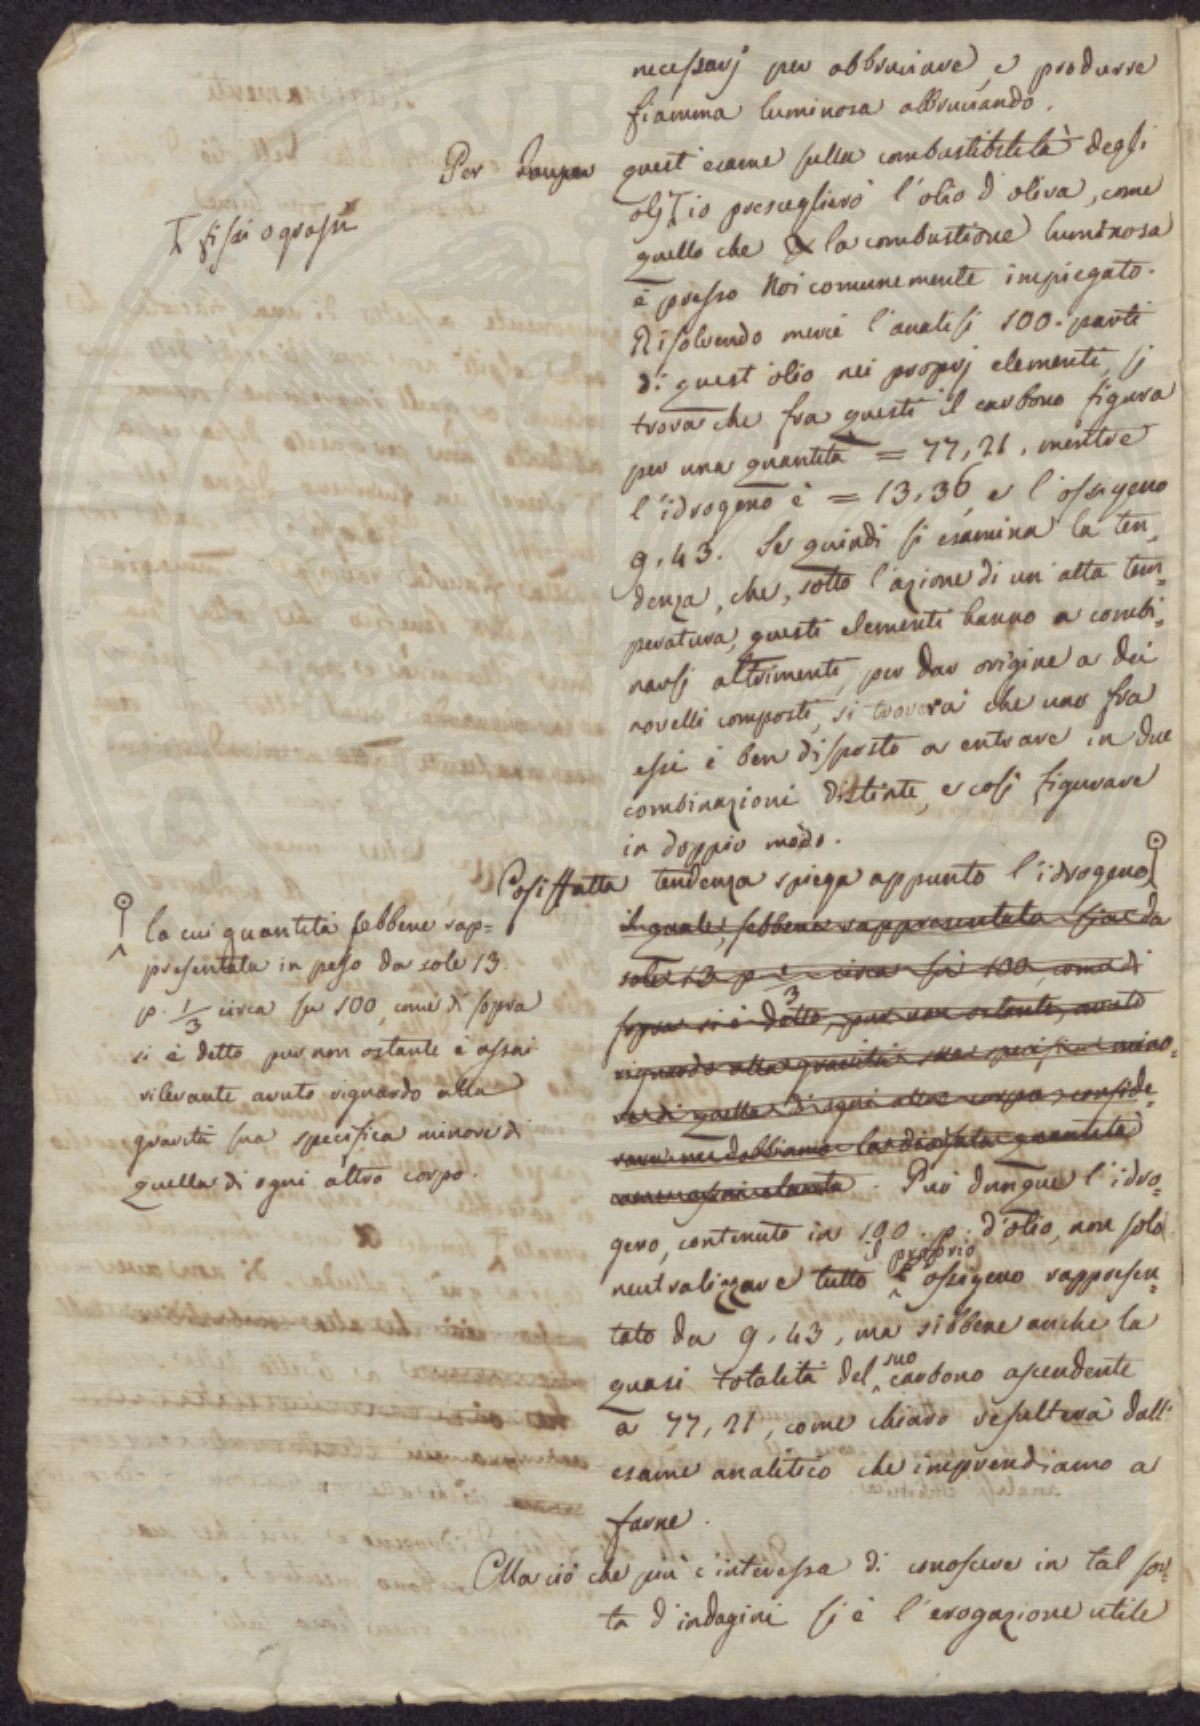 necessarj per abbruciare, e produrre
fiamma luminosa abbruciando.
Per quest'esame sulla combustibilità degli
olj io prescegliero l'olio d'oliva, come
fissi o grassi
quello che la combustione luminosa
è presso Noi comunemente impiegato.
Risolvendo mercè l'analisi 100. parti
di quest'olio nei proprj elementi, si
trova che fra questi il carbono figura
per una quantità = 77,21, mentre
l'idrogeno è = 13,36, e l'ossigeno
9,43. Se quindi si esamina la ten=
denza, che, sotto l'azione di un'alta tem=
peratura, questi elementi hanno a combi=
narsi altrimenti, per dar origine a dei
novelli composti, si troverà che uno fra
essi è ben disposto a entrare in due
combinazioni distinte, e così figurare
in doppio modo.
Cosiffatta tendenza spiega appunto l'idrogeno
la cui quantità sebbene rap=
presentata in peso da sole 13.
p. 1/3 circa su 100, come di sopra
si è detto pur non ostante è assai
rilevante avuto riguardo alla
gravità sua specifica minore di
quella di ogni altro corpo.
il quale, sebbene rappresentato sia da
sole 13 p 1/3 circa su 100, come di
sopra si è detto, pur non ostante, avuto
riguardo alla gravità sua specifica mino=
re di quella di ogni altro corpo, conside=
rare ne dobbiamo la quantità
. Può dunque l'idro=
geno, contenuto in 100. p. d'olio, non solo
neutralizzare tutto il proprio ossigeno rappresen=
tato da 9,43, ma sibbene anche la
quasi totalità del suo carbono ascendente
a 77,21, come chiaro resulterà dall'
esame analitico che imprendiamo a
farne.
Ma ciò che più c'interessa di conoscere in tal sor=
ta d'indagini si è l'erogazione utile